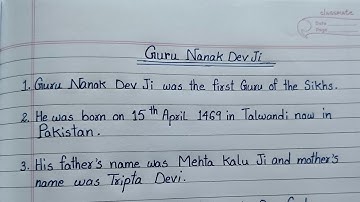 classmate
Date
Page
Guru Nanak Dev Ji
1. Guru Nanak Dev Ji was the first Guru of the Sikhs.
2. He was born on 15th April 1469 in Talwandi now in
Pakistan.
3. His father's name was Mehta Kalu Ji and mother's
name was Tripta Devi.